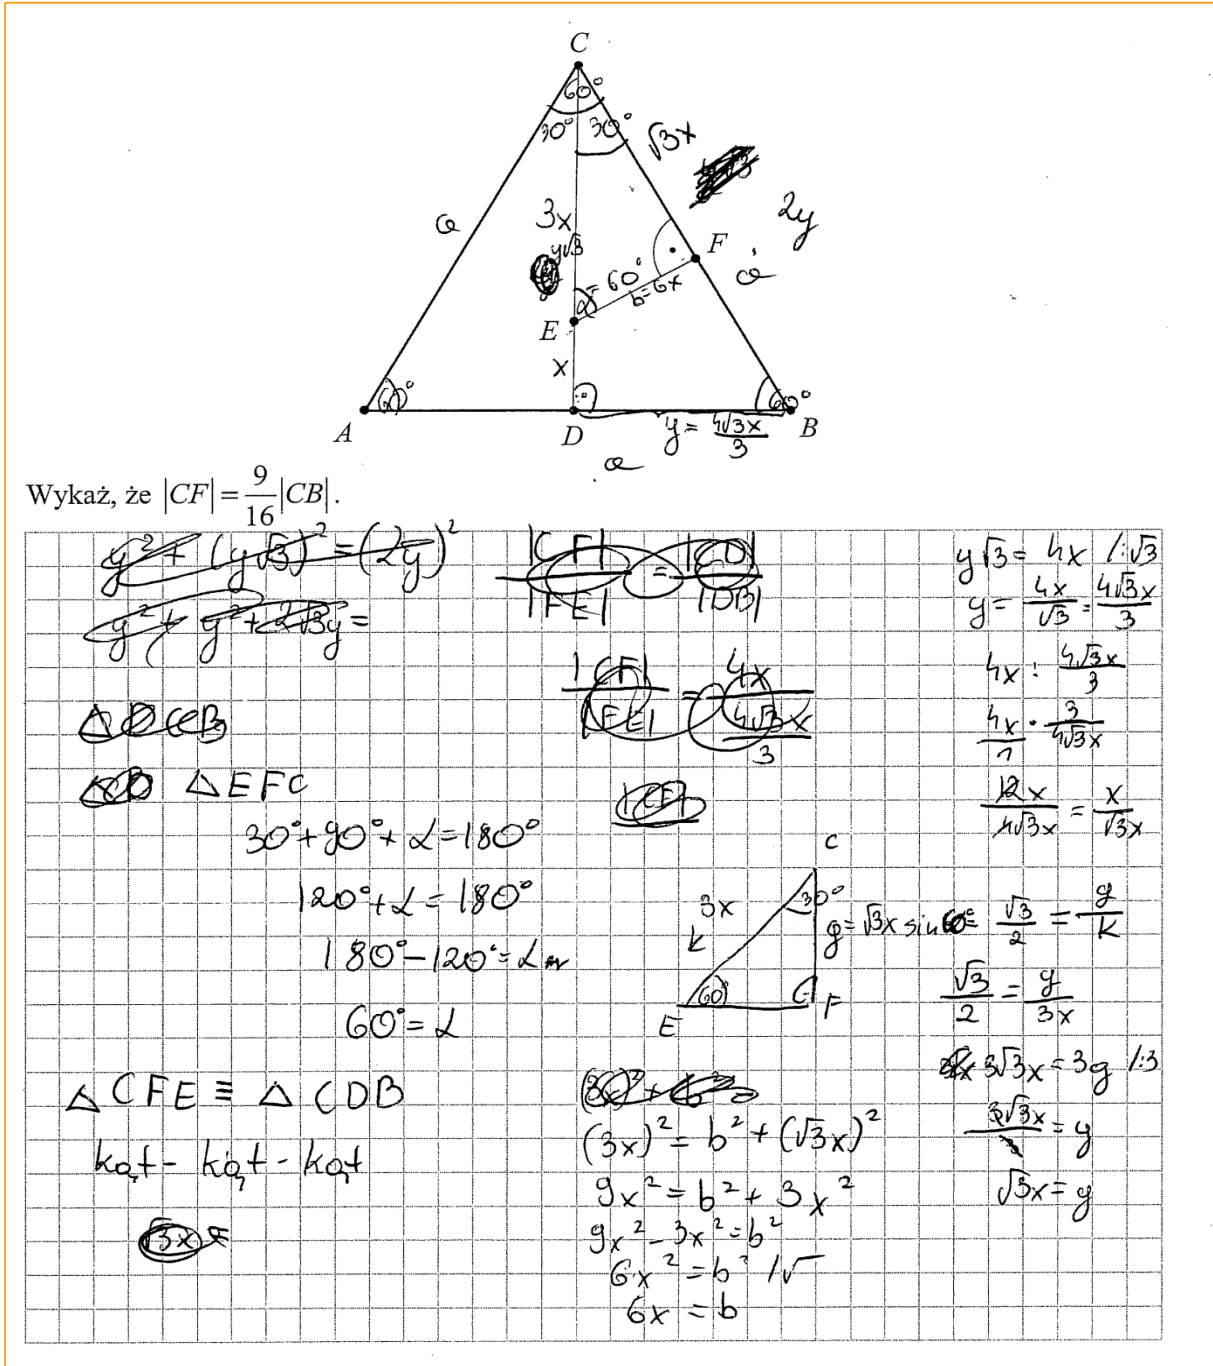 C
60°
30° 30°
√3x
a
3x
y√3
2y
F
a
α=60°
b=6x
E
x
60°
60°
A
D
y= 4√3x/3
B
a
Wykaż, że |CF| = 9/16 |CB|.
y² + (y√3)² = (2y)²
y² + y² + 2√3y =
△EFC
30°+90°+α=180°
120°+α=180°
180°-120°=α
60°=α
△CFE ≡ △CDB
kąt - kąt - kąt
√3x =
|CF|/|FE| = |CD|/|DB|
|CF|/|FE| = 4x/(4√3x/3)
|CF|
C
3x
30°
k
g=√3x
60°
E
F
(3x)² = b² + (√3x)²
9x² = b² + 3x²
9x² - 3x² = b²
6x² = b² /√
6x = b
y√3 = 4x /:√3
y = 4x/√3 = 4√3x/3
4x : 4√3x/3
4x/1 · 3/4√3x
12x/4√3x = x/√3x
sin60° = √3/2 = g/k
√3/2 = g/3x
3√3x = 3g /:3
3√3x/3 = y
√3x = y